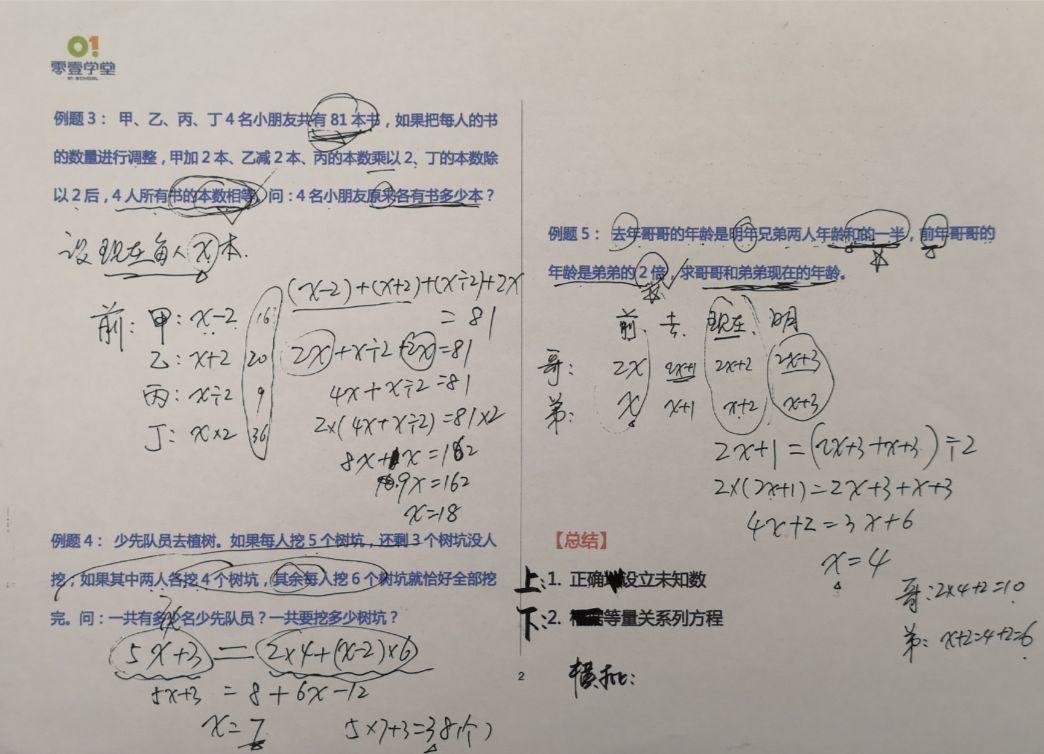 01
零壹学堂
01 SCHOOL
例题3： 甲、乙、丙、丁4名小朋友共有81本书，如果把每人的书
的数量进行调整，甲加2本、乙减2本、丙的本数乘以2、丁的本数除
以2后，4人所有书的本数相等。问：4名小朋友原来各有书多少本？
设现在每人x本.
(x-2)+(x+2)+(x÷2)+2x
=81
前: 甲: x-2 16
乙: x+2 20
丙: x÷2 9
丁: x×2 36
2x+x÷2+2x=81
4x+x÷2=81
2×(4x+x÷2)=81×2
8x+x=162
9x=162
x=18
例题4： 少先队员去植树。如果每人挖5个树坑，还剩3个树坑没人
挖；如果其中两人各挖4个树坑，其余每人挖6个树坑就恰好全部挖
完。问：一共有多少名少先队员？一共要挖多少树坑？
5x+3=2×4+(x-2)×6
5x+3=8+6x-12
x=7
5×7+3=38(个)
例题5： 去年哥哥的年龄是明年兄弟两人年龄和的一半，前年哥哥的
年龄是弟弟的2倍，求哥哥和弟弟现在的年龄。
前. 去. 现在. 明
哥: 2x 2x+1 2x+2 2x+3
弟: x x+1 x+2 x+3
2x+1=(2x+3+x+3)÷2
2×(2x+1)=2x+3+x+3
4x+2=3x+6
x=4
哥:2×4+2=10
弟: x+2=4+2=6
【总结】
上: 1. 正确设立未知数
下: 2. 等量关系列方程
横批:
2